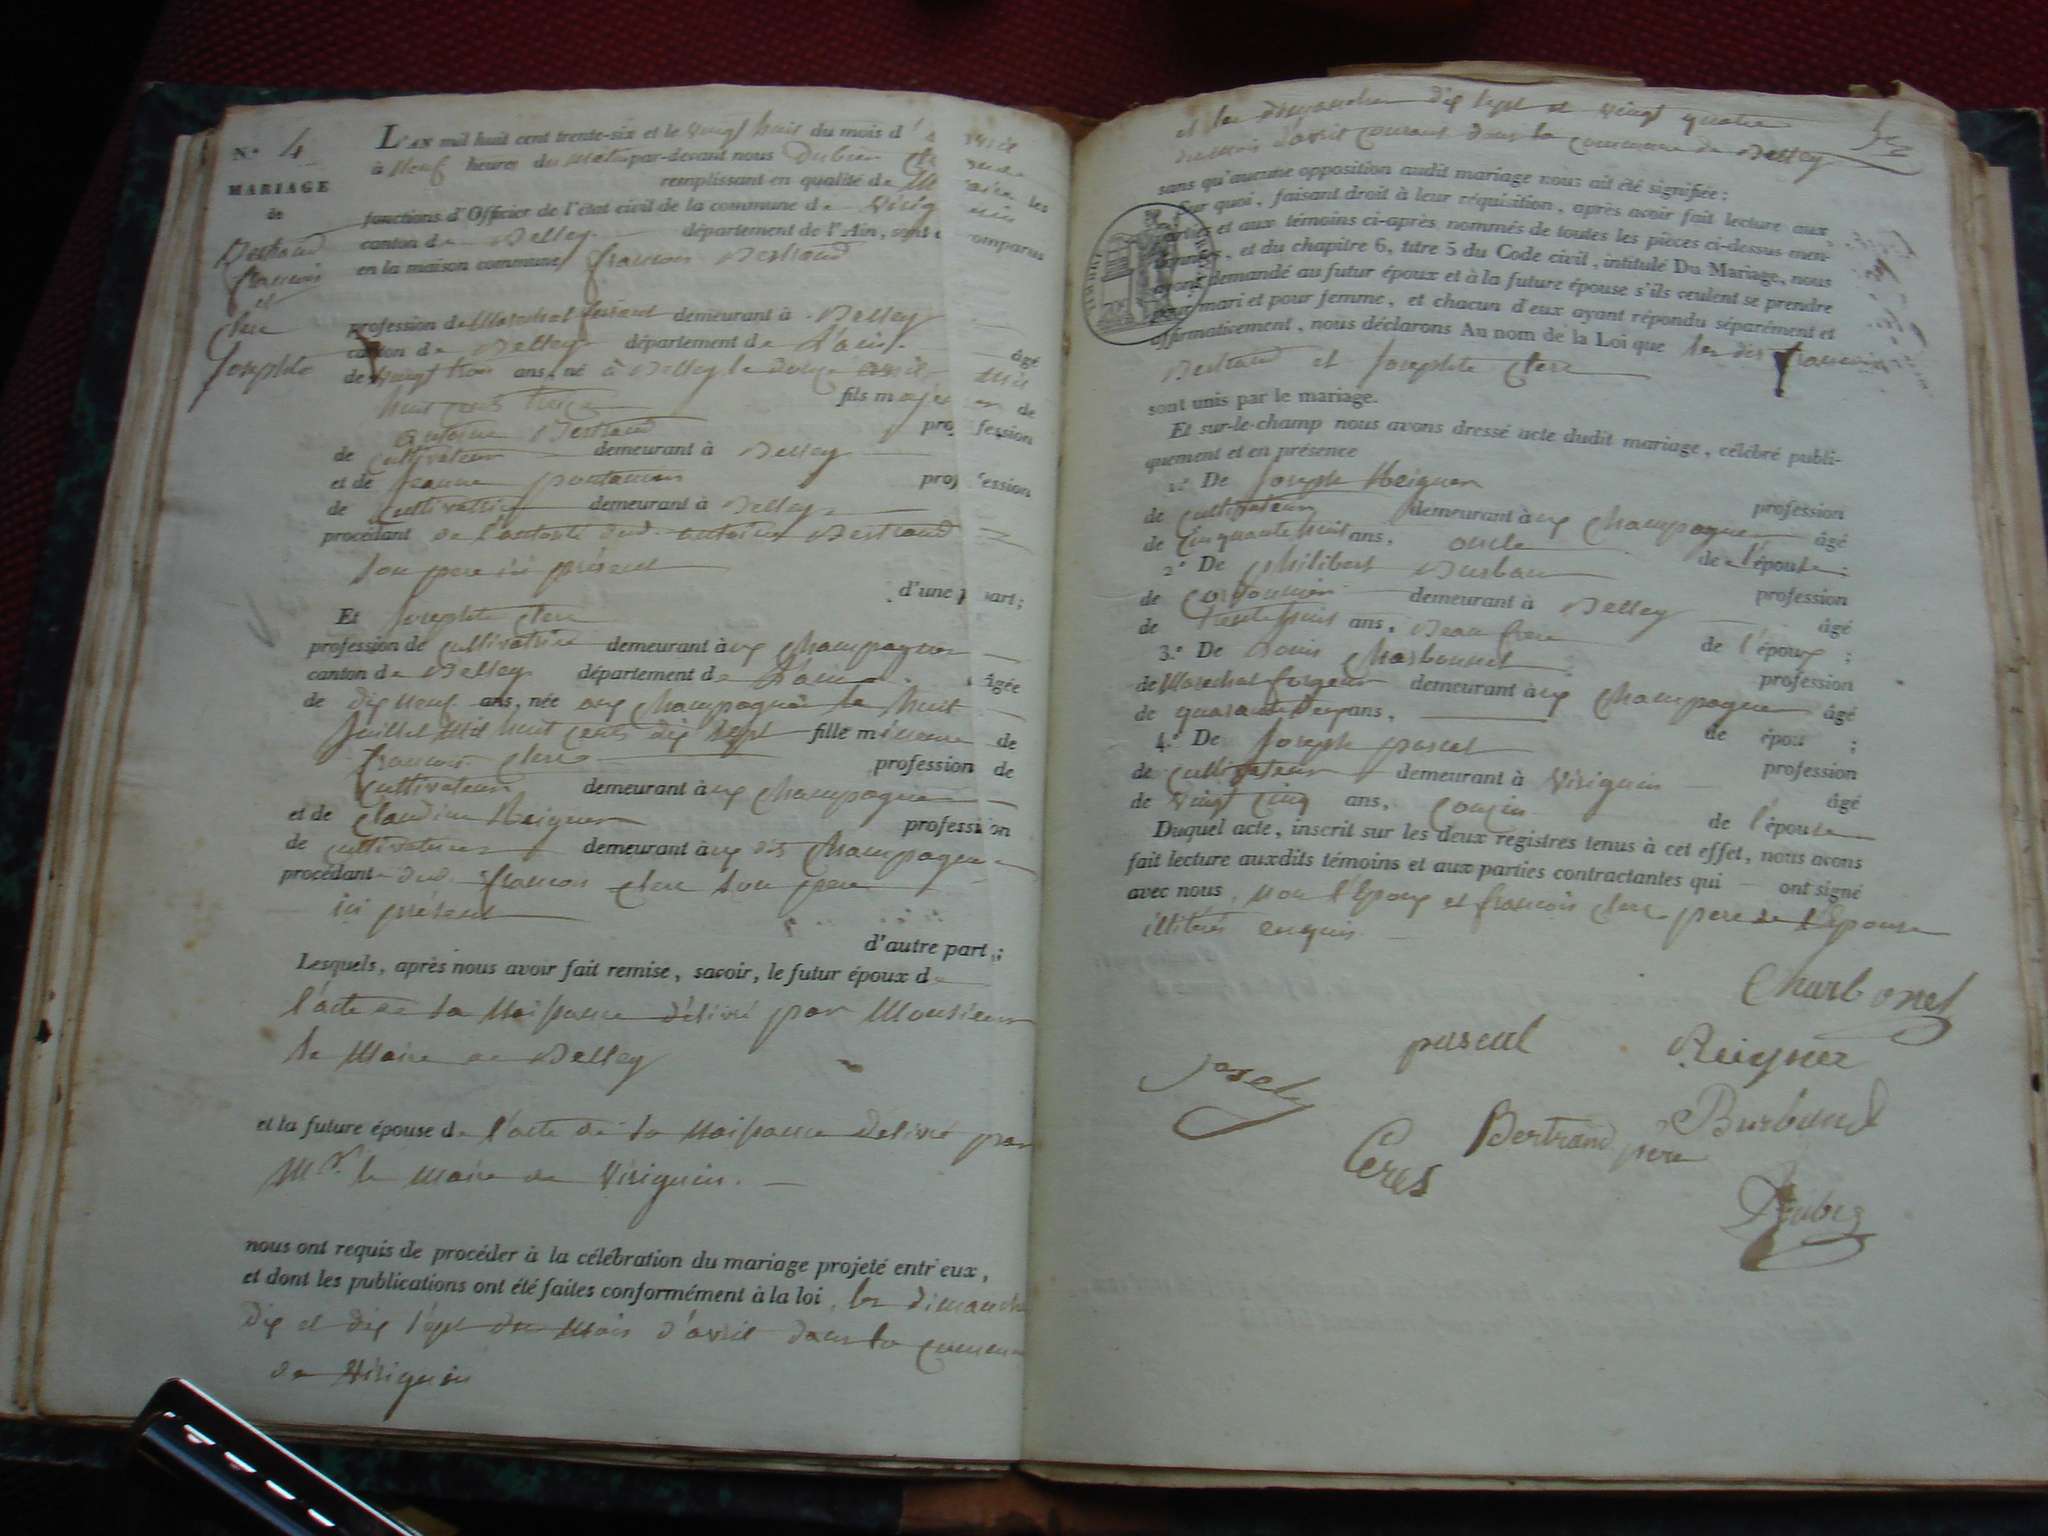 N.º 4
MARIAGE
de
Bertrand
françois
et
Clerc
Josephte
L'AN mil huit cent trente-six et le vingt huit du mois d'avril
à Neuf heures du Matin par-devant nous Dubiez
remplissant en qualité de Maire les
fonctions d'Officier de l'état civil de la commune de Virignin
canton de Belley département de l'Ain, sont comparus
en la maison commune françois Bertrand
profession de Marechal ferrant demeurant à Belley
canton de Belley département de L'ain âgé
de vingt trois ans, né à Belley le douze avril Mil
huit cents treize fils majeur de
antoine Bertrand profession
de Cultivateur demeurant à Belley
et de jeanne profession
de Cultivatrice demeurant à Belley
procédant de l'autorité dud. antoine Bertrand
son pere ici présent
d'une part;
Et Josephte Clerc
profession de Cultivatrice demeurant à ux Champagnes
canton de Belley département de L'ain âgée
de dix neuf ans, née aux Champagnes le huit
Juillet Mil huit cents dix sept fille mineure de
françois Clerc profession de
Cultivateur demeurant à ux Champagnes
et de Claudine Reignier profession
de Cultivatrice demeurant à ux dits Champagnes
procédant dud. françois Clerc son pere
ici présent
d'autre part;
Lesquels, après nous avoir fait remise, savoir, le futur époux de
l'acte de sa Naissance délivré par Monsieur
le Maire de Belley
et la future épouse de l'acte de sa Naissance délivré par
Mr. le Maire de Virignin.
nous ont requis de procéder à la célébration du mariage projeté entr'eux,
et dont les publications ont été faites conformément à la loi, les dimanche
dix et dix sept du Mois d'avril dans la commune
de Virignin
et les dimanches dix sept et vingt quatre
du mois d'avril courant dans la commune de Belley
sans qu'aucune opposition audit mariage nous ait été signifiée;
Sur quoi, faisant droit à leur réquisition, après avoir fait lecture aux
parties et aux témoins ci-après nommés de toutes les pièces ci-dessus men-
tionnées, et du chapitre 6, titre 5 du Code civil, intitulé Du Mariage, nous
avons demandé au futur époux et à la future épouse s'ils veulent se prendre
pour mari et pour femme, et chacun d'eux ayant répondu séparément et
affirmativement, nous déclarons Au nom de la Loi que les dis françois
Bertrand et Josephte Clerc
sont unis par le mariage.
Et sur-le-champ nous avons dressé acte dudit mariage, célébré publi-
quement et en présence
1.º De Joseph Reignier profession
de Cultivateur demeurant à ux Champagnes âgé
de Cinquante huit ans, oncle de l'épouse;
2.º De Philibert Burbaud profession
de Cordonnier demeurant à Belley âgé
de trente huit ans, Beau frere de l'époux;
3.º De Louis Charbonnet profession
de Marechal forgeur demeurant à ux Champagnes âgé
de quarante deux ans, de épou ;
4.º De Joseph pascal profession
de Cultivateur demeurant à Virignin âgé
de vingt cinq ans, Cousin de l'épouse
Duquel acte, inscrit sur les deux registres tenus à cet effet, nous avons
fait lecture auxdits témoins et aux parties contractantes qui ont signé
avec nous, non l'Epoux et françois Clerc pere de l'Epouse
illitérés enquis
Charbonet
pascal Reignier
Burbaud
Bertrand père
Dubiez